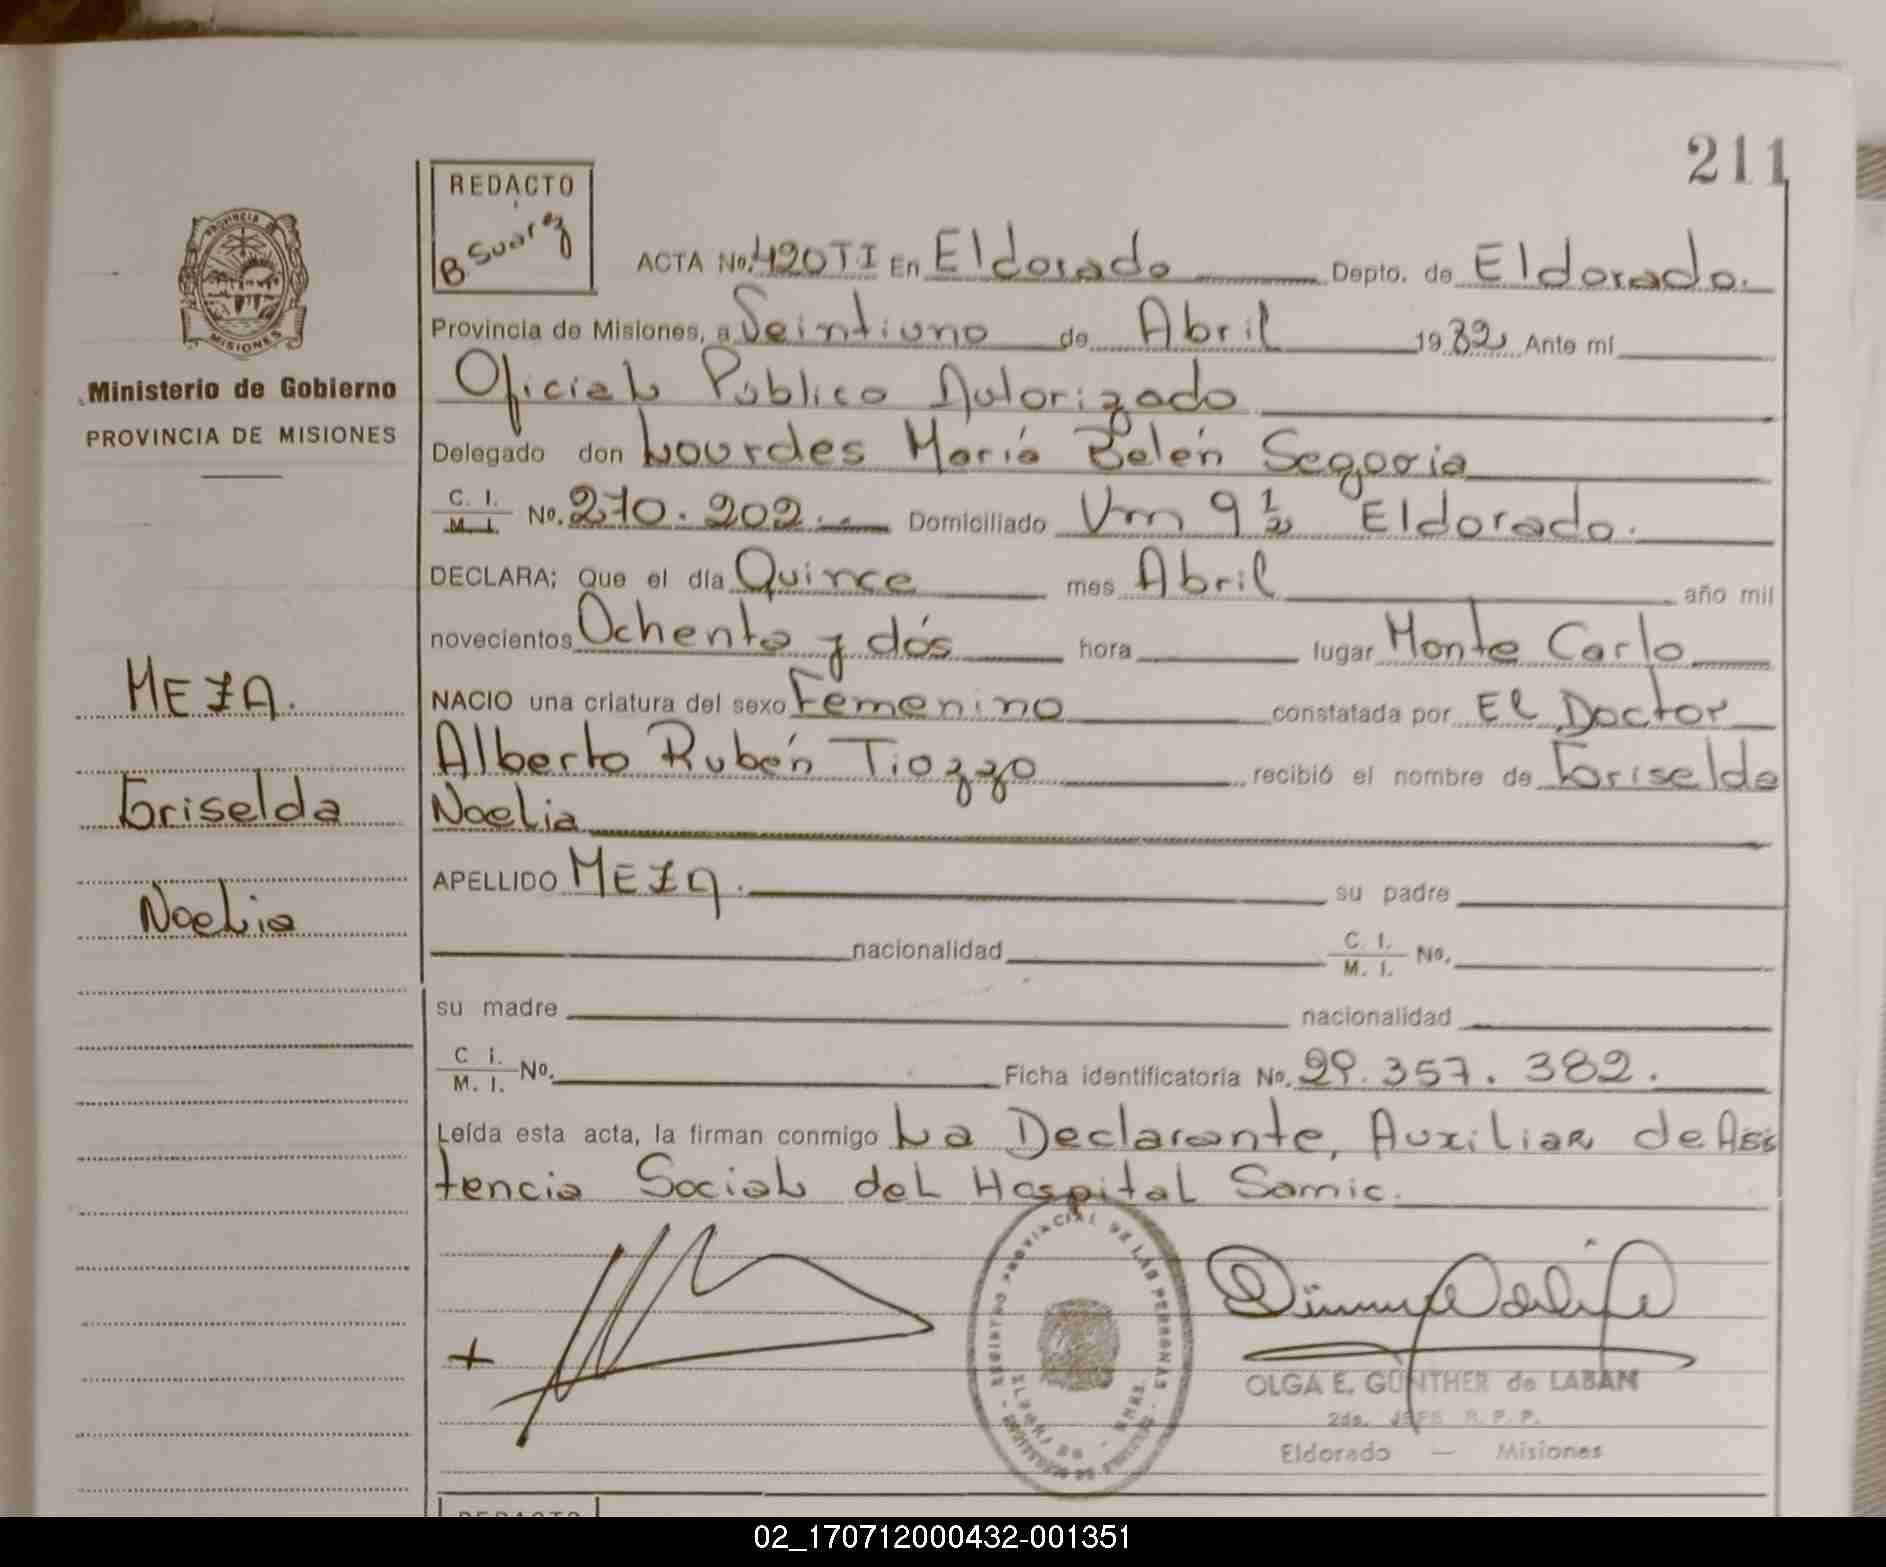 211
REDACTO
B Suarez
PROVINCIA
MISIONES
Ministerio de Gobierno
PROVINCIA DE MISIONES
ACTA No. 420 TI En Eldorado Depto. de Eldorado.
Provincia de Misiones, a Veintiuno de Abril 1982 Ante mí
Oficial Público Autorizado
Delegado don Lourdes María Belén Segovia
C. I. M. I. No. 210.202. Domiciliado Km 9 1/2 Eldorado.
DECLARA; Que el día Quince mes Abril año mil
novecientos Ochenta y dós hora lugar Monte Carlo
NACIO una criatura del sexo Femenino constatada por El Doctor
Alberto Rubén Tiozzo recibió el nombre de Griselda
Noelia
MEZA.
Griselda
Noelia
APELLIDO MEZA. su padre
nacionalidad C. I. M. I. No.
su madre nacionalidad
C I. M. I. No. Ficha identificatoria No. 29.357.382.
Leída esta acta, la firman conmigo La Declarante, Auxiliar de Asis
tencia Social del Hospital Samic.
REGISTRO PROVINCIAL DE LAS PERSONAS
OLGA E. GÜNTHER de LABAN
2do. JEFE R. P. P.
Eldorado — Misiones
REDACTO
02_170712000432-001351